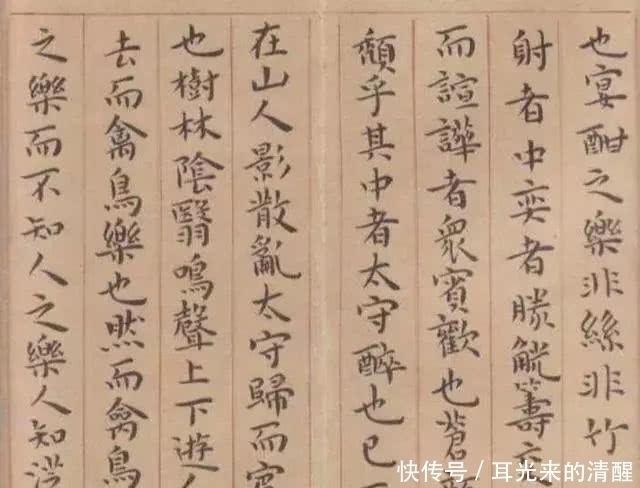 也宴酣之樂非絲非竹
射者中奕者勝觥籌
而諠譁者衆賓歡也蒼
頹乎其中者太守醉也已
在山人影散亂太守歸而賓
也樹林陰翳鳴聲上下遊人
去而禽鳥樂也然而禽鳥
之樂而不知人之樂人知
快传号／耳光来的清醒